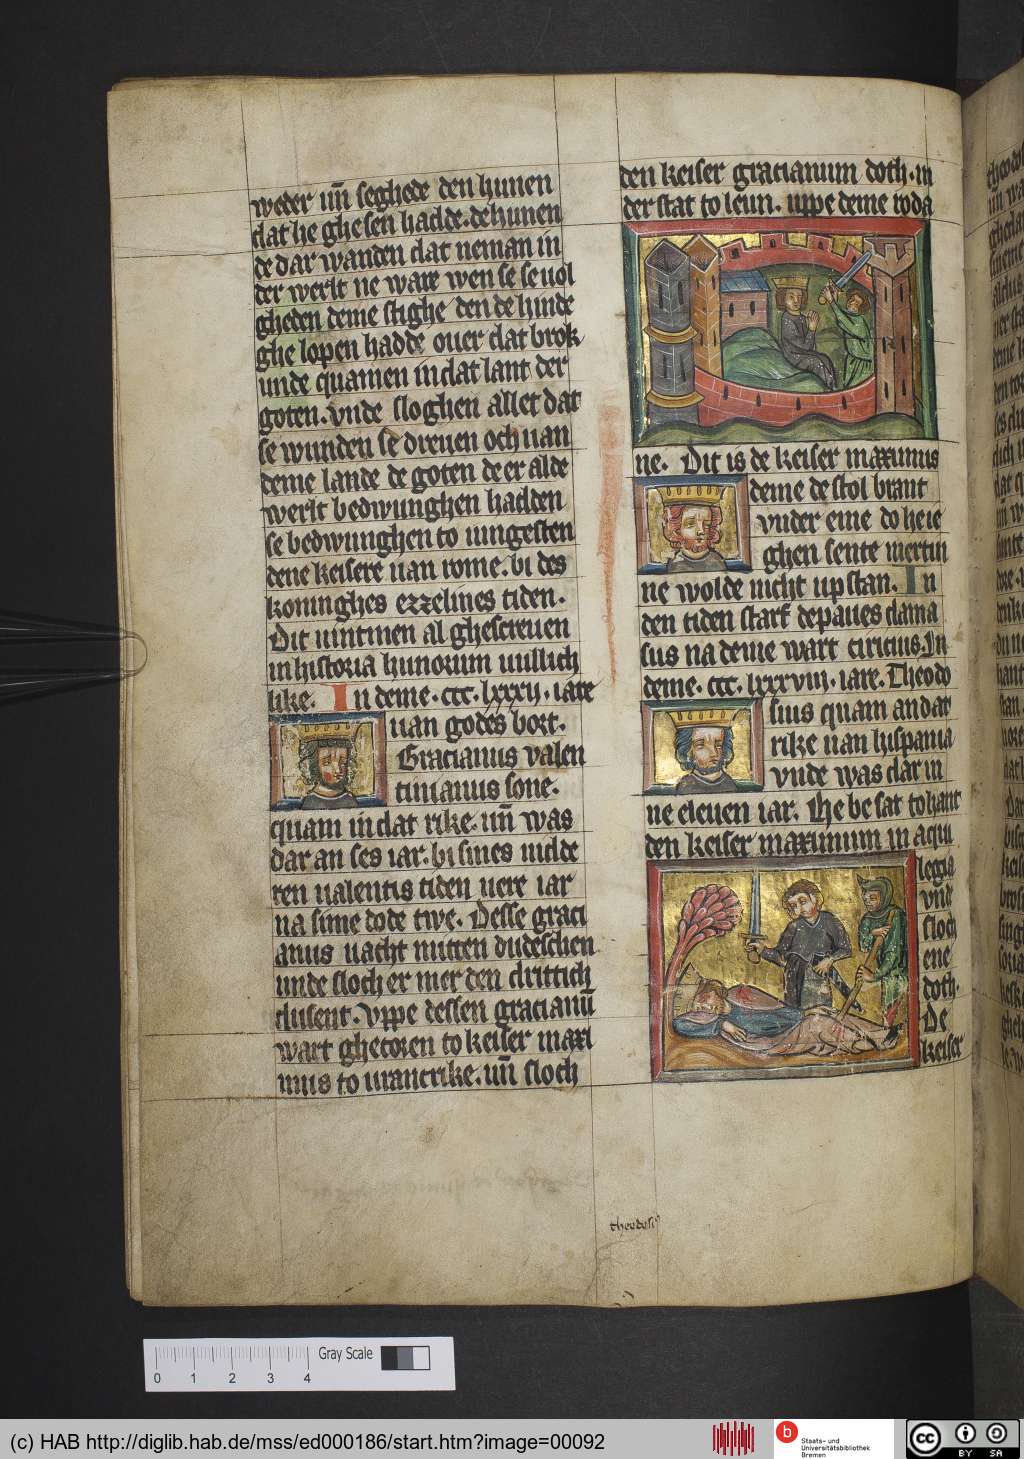 weder uñ seghede den hunen
dat he ghesen hadde. de hunen
de dar wanden dat neman in
der werlt ne ware wen se se uol
gheden deme stighe den de hinde
ghe lopen hadde ouer dat brok
unde quamen in dat lant der
goten. vnde sloghen allet dat
se wunden se dreuen och uan
deme lande de goten de er alde
werlt bedwunghen hadden
se bedwunghen to iungesten
dene keisere uan rome. bi des
koninghes ezzelines tiden.
Dit uintmen al ghescreuen
in historia hunorum uullich
like. In deme. ccc. lxxxii. iare
uan godes bort.
Gracianus valen
tinianus sone.
quam in dat rike. uñ was
dar an ses iar. bi sines uidde
ren ualentis tiden uere iar
na sime dode twe. Desse graci
anus uacht mitten dudeschen
unde sloch er mer den drittich
dusent. Vppe dessen gracianū
wart ghecoren to keiser maxi
mus to urancrike. uñ sloch
den keiser gracianum doth. in
der stat to leun. uppe deme roda
ne. Dit is de keiser maximus
deme de stol brant
vnder eme do he ie
ghen sente mertin
ne wolde nicht up stan. In
den tiden starf de paues dama
sus na deme wart ciricius. In
deme. ccc. lxxxviii. iare. Theodo
sius quam an dat
rike uan hispania
vnde was dar in
ne eleuen iar. He be sat to hant
den keiser maximum in aqui
legia
vnde
sloch
ene
doth.
De
keiser
theodosiꝰ
0 1 2 3 4
Gray Scale
(c) HAB http://diglib.hab.de/mss/ed000186/start.htm?image=00092
b
Staats- und
Universitätsbibliothek
Bremen
cc
BY SA